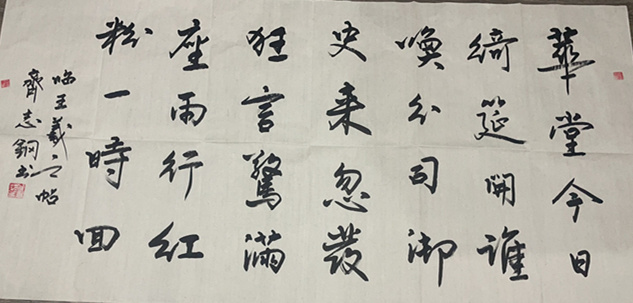 華堂今日
綺筵開誰
喚分司御
史来忽發
狂言驚滿
座兩行紅
粉一時回
临王羲之帖
齊志鋼书